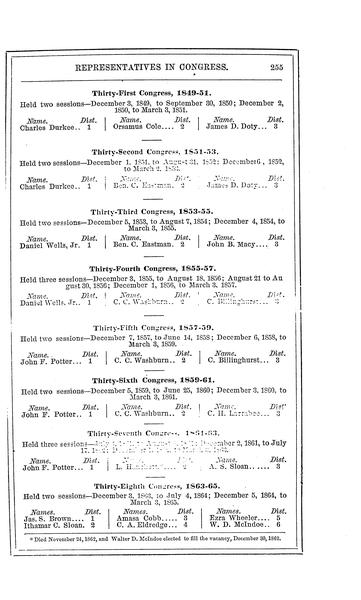 REPRESENTATIVES IN CONGRESS. 255
Thirty-First Congress, 1849-51.
Held two sessions—December 3, 1849, to September 30, 1850; December 2,
1850, to March 3, 1851.
Name. Dist. Name. Dist. Name. Dist.
Charles Durkee.. 1 Orsamus Cole.... 2 James D. Doty... 3
Thirty-Second Congress, 1851-53.
Held two sessions—December 1, 1851, to August 31, 1852; December 6, 1852,
to March 2, 1853.
Name. Dist. Name. Dist. Name. Dist.
Charles Durkee.. 1 Ben. C. Eastman. 2 James D. Doty... 3
Thirty-Third Congress, 1853-55.
Held two sessions—December 5, 1853, to August 7, 1854; December 4, 1854, to
March 3, 1855.
Name. Dist. Name. Dist. Name. Dist.
Daniel Wells, Jr. 1 Ben. C. Eastman. 2 John B. Macy.... 3
Thirty-Fourth Congress, 1855-57.
Held three sessions—December 3, 1855, to August 18, 1856; August 21 to Au
gust 30, 1856; December 1, 1856, to March 3, 1857.
Name. Dist. Name. Dist. Name. Dist.
Daniel Wells, Jr.. 1 C. C. Washburn.. 2 C. Billinghurst... 3
Thirty-Fifth Congress, 1857-59.
Held two sessions—December 7, 1857, to June 14, 1858; December 6, 1858, to
March 3, 1859.
Name. Dist. Name. Dist. Name. Dist.
John F. Potter... 1 C. C. Washburn.. 2 C. Billinghurst... 3
Thirty-Sixth Congress, 1859-61.
Held two sessions—December 5, 1859, to June 25, 1860; December 3, 1860, to
March 3, 1861.
Name. Dist. Name. Dist. Name. Dist
John F. Potter.. 1 C. C. Washburn.. 2 C. H. Larrabee... 3
Thirty-Seventh Congress, 1861-63.
Held three sessions— December 2, 1861, to July
17,
Name. Dist. Name. Dist. Name. Dist.
John F. Potter... 1 L. 2 A. S. Sloan...... 3
Thirty-Eighth Congress, 1863-65.
Held two sessions—December 3, 1863, to July 4, 1864; December 5, 1864, to
March 3, 1865.
Name. Dist. Name. Dist. Name. Dist.
Jas. S. Brown.... 1 Amasa Cobb..... 3 Ezra Wheeler.... 5
Ithamar C. Sloan. 2 C. A. Eldredge... 4 W. D. McIndoe.. 6
* Died November 24, 1862, and Walter D. McIndoe elected to fill the vacancy, December 30, 1862.